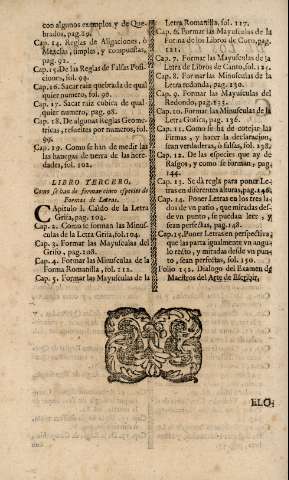 con algunos exemplos y de Que-
brados, pag. 89.
Cap. 14. Reglas de Aligaciones, ò
Mezclas, simples, y compuestas,
pag. 92.
Cap. 15. De las Reglas de Falsas Posi-
ciones, fol. 94.
Cap. 16. Sacar raiz quebrada de qual
quier numero, fol. 96.
Cap. 17. Sacar raiz cubica de qual
quier numero, fol. 98.
Cap. 18. De algunas Reglas Geome-
tricas, resueltas por numeros, fol.
99.
Cap. 19. Como se han de medir las
las hanegas de tierra de las here-
dades, fol. 102.
LIBRO TERCERO,
Como se han de formar cinco especies de
Formas de Letras.
Capitulo 1. Caldo de la Letra
Grifa, pag. 104.
Cap. 2. Como se forman las Minus-
culas de la Letra Grifa, fol. 104.
Cap. 3. Formar las Mayusculas del
Grifo, pag. 108.
Cap. 4. Formar las Minusculas de la
Forma Romanilla, fol. 112.
Cap. 5. Formar las Mayusculas de la
Letra Romanilla, fol. 117.
Cap. 6. Formar las Mayusculas de la
Forma de los Libros de Coro, pag.
121.
Cap. 7. Formar las Mayusculas de la
Letra de Libros de Canto, fol. 121.
Cap. 8. Formar las Minusculas de la
Letra redonda, pag. 130.
Cap. 9. Formar las Mayusculas del
Redondo, pag. 135.
Cap. 10. Formar las Minusculas de la
Letra Gotica, pag. 136.
Cap. 11. Como se ha de cotejar las
Firmas, y hacer la declaracion,
sean verdaderas, ò falsas, fol. 138.
Cap. 12. De las especies que ay de
Rasgos, y como se forman, pag.
144.
Cap. 13. Se dà regla para poner Le-
tras en diferentes alturas, pag. 146.
Cap. 14. Poner Letras en los tres la-
dos de vn paño, que miradas des-
de vn punto, se puedan leer, y
sean perfectas, pag. 148.
Cap. 15. Poner Letras en perspectiva;
que las parta igualmente vn angu-
lo recto, y miradas desde vn pun-
to, sean perfectas, fol. 150.
Folio 152. Dialogo del Examen de
Maestros del Arte de Escrivir,
ELO-